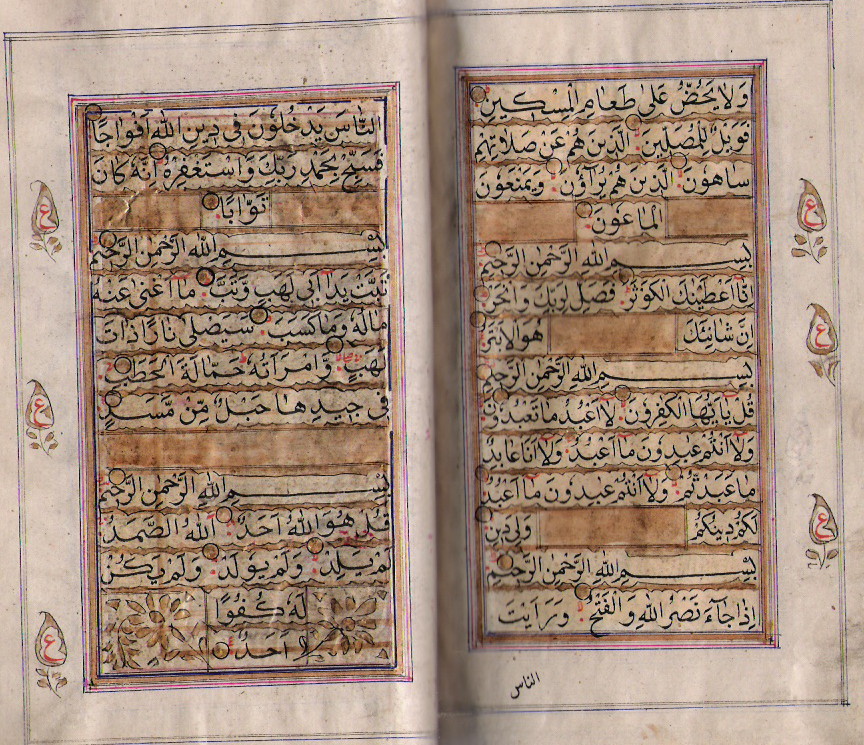 وَلَا يَحُضُّ عَلٰى طَعَامِ الْمِسْكِيْنِ
فَوَيْلٌ لِّلْمُصَلِّيْنَ الَّذِيْنَ هُمْ عَنْ صَلَاتِهِمْ
سَاهُوْنَ الَّذِيْنَ هُمْ يُرَآؤُنَ وَيَمْنَعُوْنَ
الْمَاعُوْنَ
بِسْمِ اللهِ الرَّحْمٰنِ الرَّحِيْمِ
اِنَّا اَعْطَيْنٰكَ الْكَوْثَرَ فَصَلِّ لِرَبِّكَ وَانْحَرْ
اِنَّ شَانِئَكَ هُوَ الْاَبْتَرُ
بِسْمِ اللهِ الرَّحْمٰنِ الرَّحِيْمِ
قُلْ يٰاَيُّهَا الْكٰفِرُوْنَ لَا اَعْبُدُ مَا تَعْبُدُوْنَ
وَلَا اَنْتُمْ عٰبِدُوْنَ مَا اَعْبُدُ وَلَا اَنَا عَابِدٌ
مَا عَبَدْتُّمْ وَلَا اَنْتُمْ عٰبِدُوْنَ مَا اَعْبُدُ
لَكُمْ دِيْنُكُمْ وَلِيَ دِيْنِ
بِسْمِ اللهِ الرَّحْمٰنِ الرَّحِيْمِ
اِذَا جَآءَ نَصْرُ اللهِ وَالْفَتْحُ وَرَاَيْتَ
الناس
ع
ع
ع
النَّاسَ يَدْخُلُوْنَ فِيْ دِيْنِ اللهِ اَفْوَاجًا
فَسَبِّحْ بِحَمْدِ رَبِّكَ وَاسْتَغْفِرْهُ اِنَّهٗ كَانَ
تَوَّابًا
بِسْمِ اللهِ الرَّحْمٰنِ الرَّحِيْمِ
تَبَّتْ يَدَا اَبِيْ لَهَبٍ وَّتَبَّ مَا اَغْنٰى عَنْهُ
مَالُهٗ وَمَا كَسَبَ سَيَصْلٰى نَارًا ذَاتَ
لَهَبٍ وَّامْرَاَتُهٗ حَمَّالَةَ الْحَطَبِ
فِيْ جِيْدِهَا حَبْلٌ مِّنْ مَّسَدٍ
بِسْمِ اللهِ الرَّحْمٰنِ الرَّحِيْمِ
قُلْ هُوَ اللهُ اَحَدٌ اَللهُ الصَّمَدُ
لَمْ يَلِدْ وَلَمْ يُوْلَدْ وَلَمْ يَكُنْ
لَهٗ كُفُوًا
اَحَدٌ
ع
ع
ع